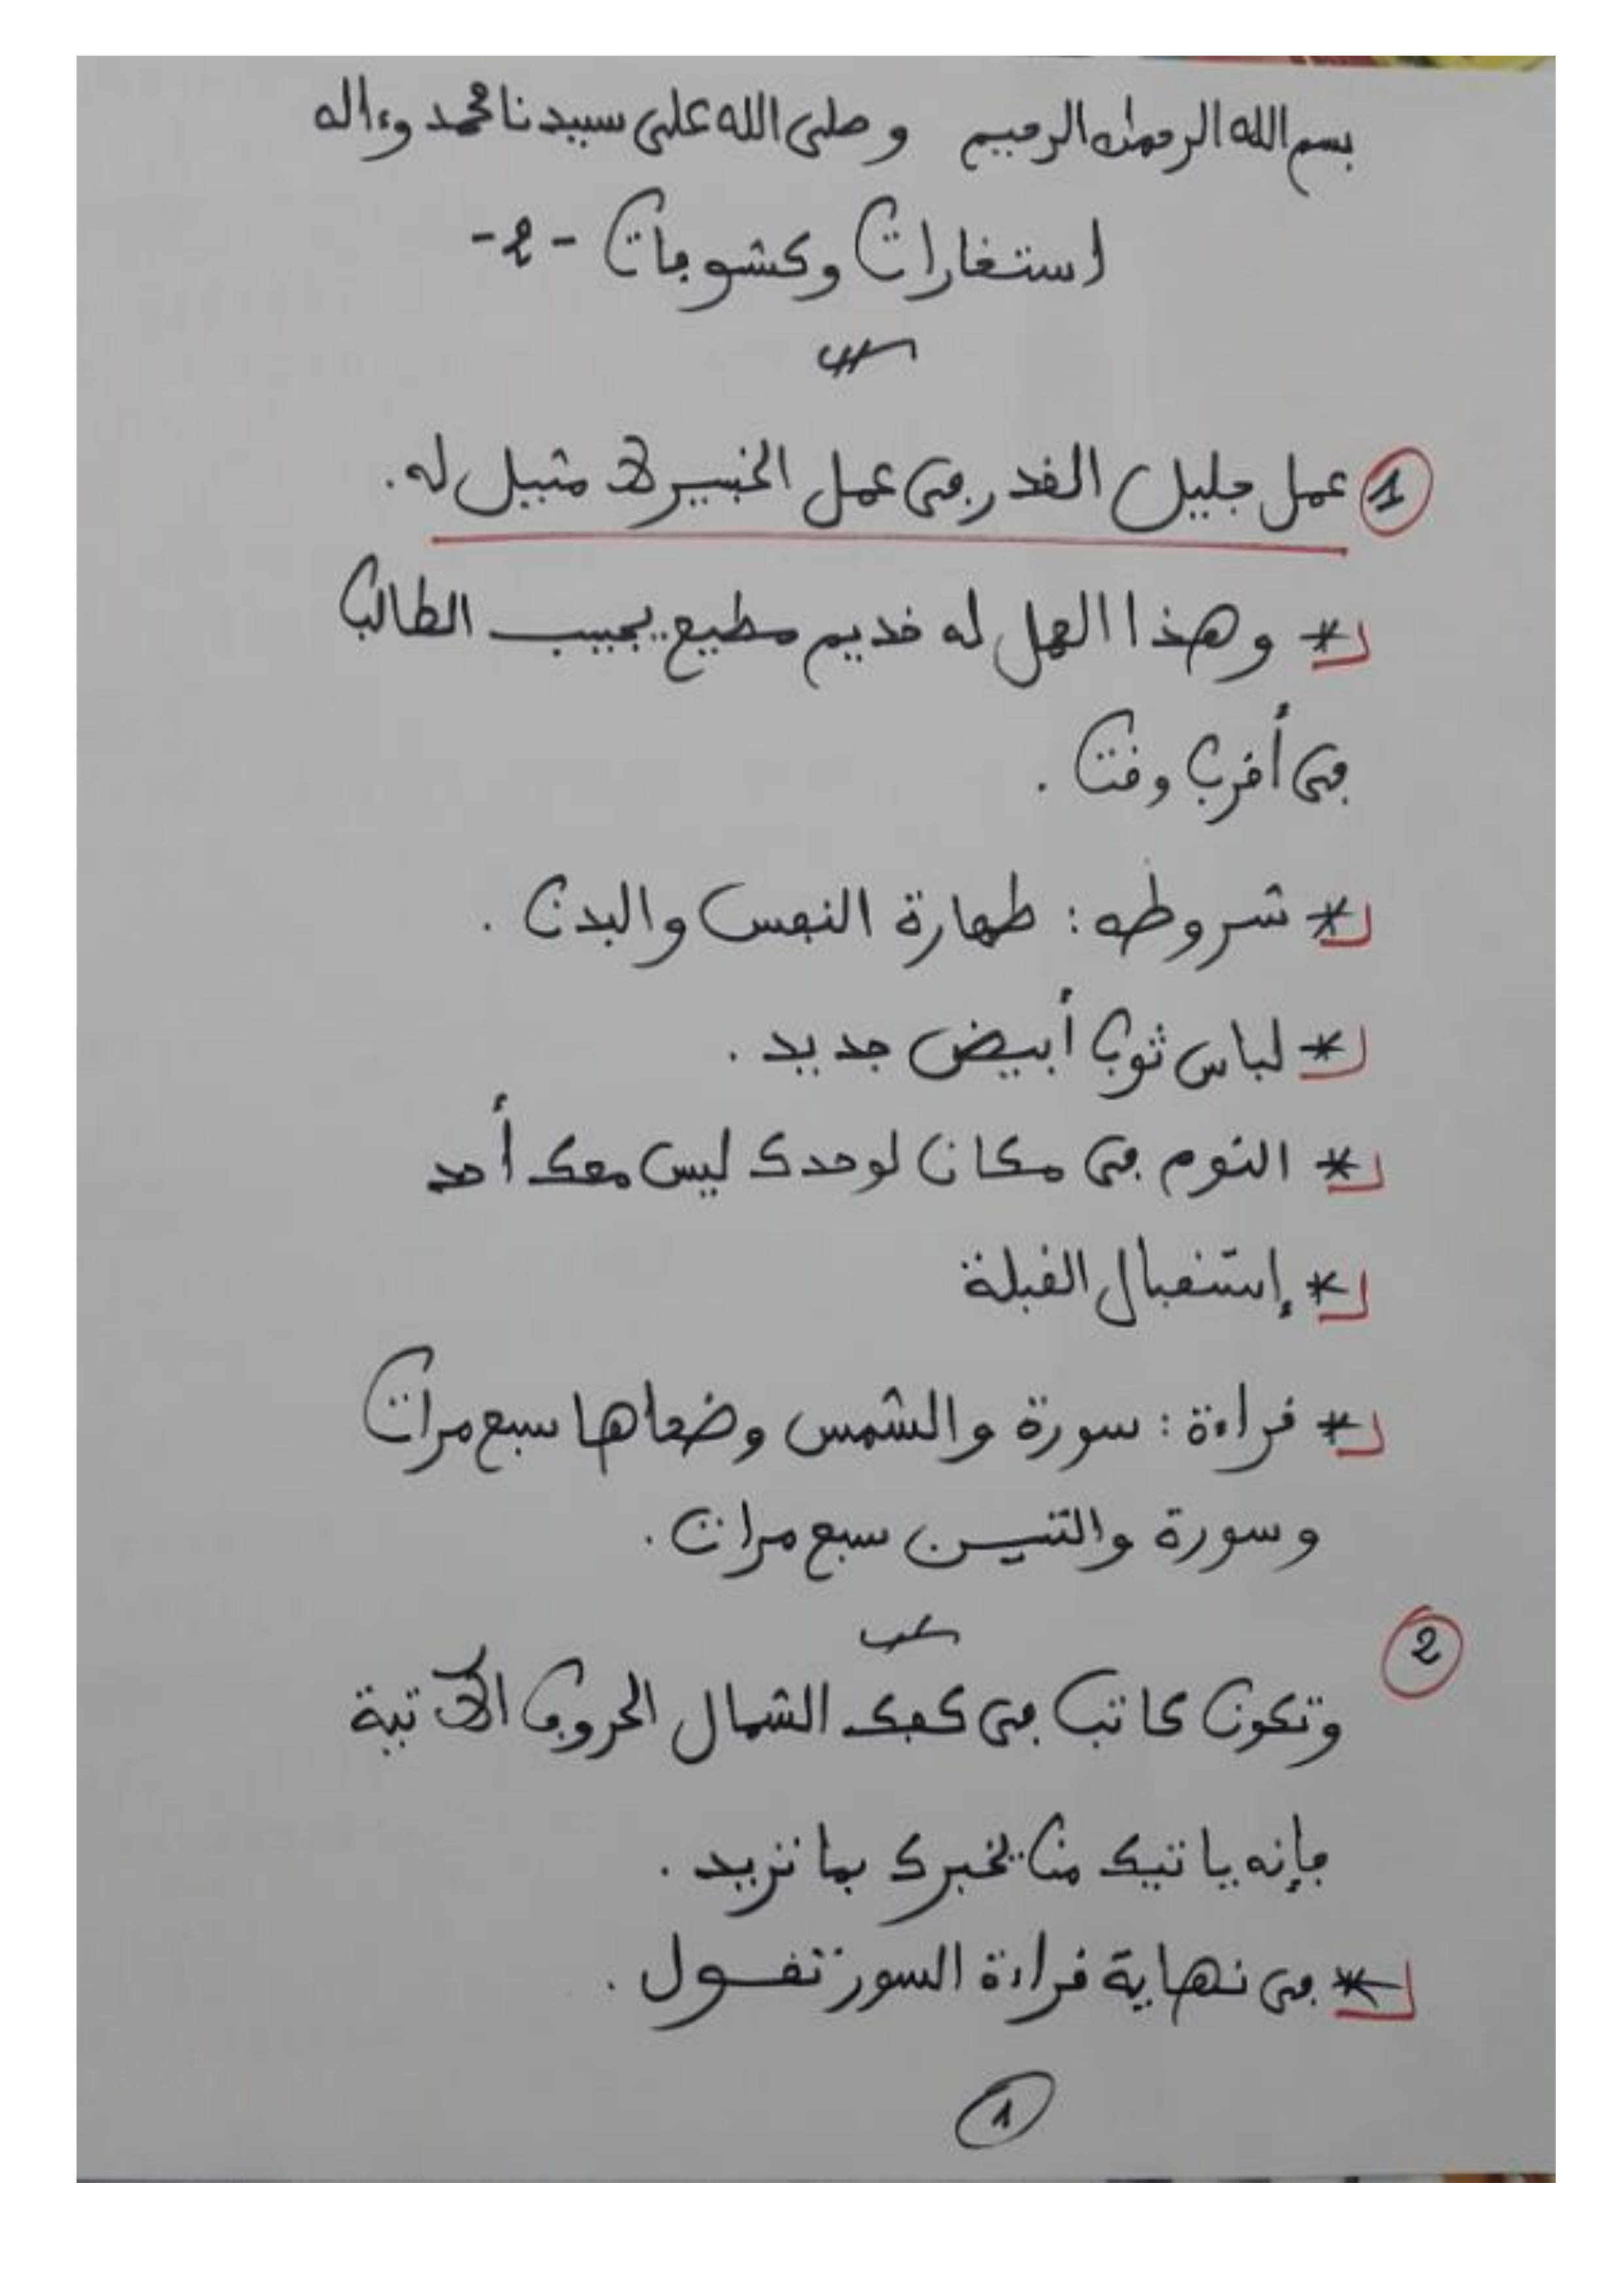 بسم الله الرحمان الرحيم وصلى الله على سيدنا محمد وءاله
استخارات وكشوفات - 2 -
1 عمل جليل القدر في عمل الخبير لا مثيل له.
* وهذا العمل له خديم مطيع يجيب الطالب
في أقرب وقت .
* شروطه : طهارة النفس والبدن .
* لباس ثوب أبيض جديد .
* النوم في مكان لوحدك ليس معك أحد
* إستقبال القبلة
* قراءة : سورة والشمس وضحاها سبع مرات
وسورة والتين سبع مرات .
2
وتكون كاتب في كفك الشمال الحروف الآتية
فإنه ياتيك من يخبرك بما تريد .
* في نهاية قراءة السور تقول .
1